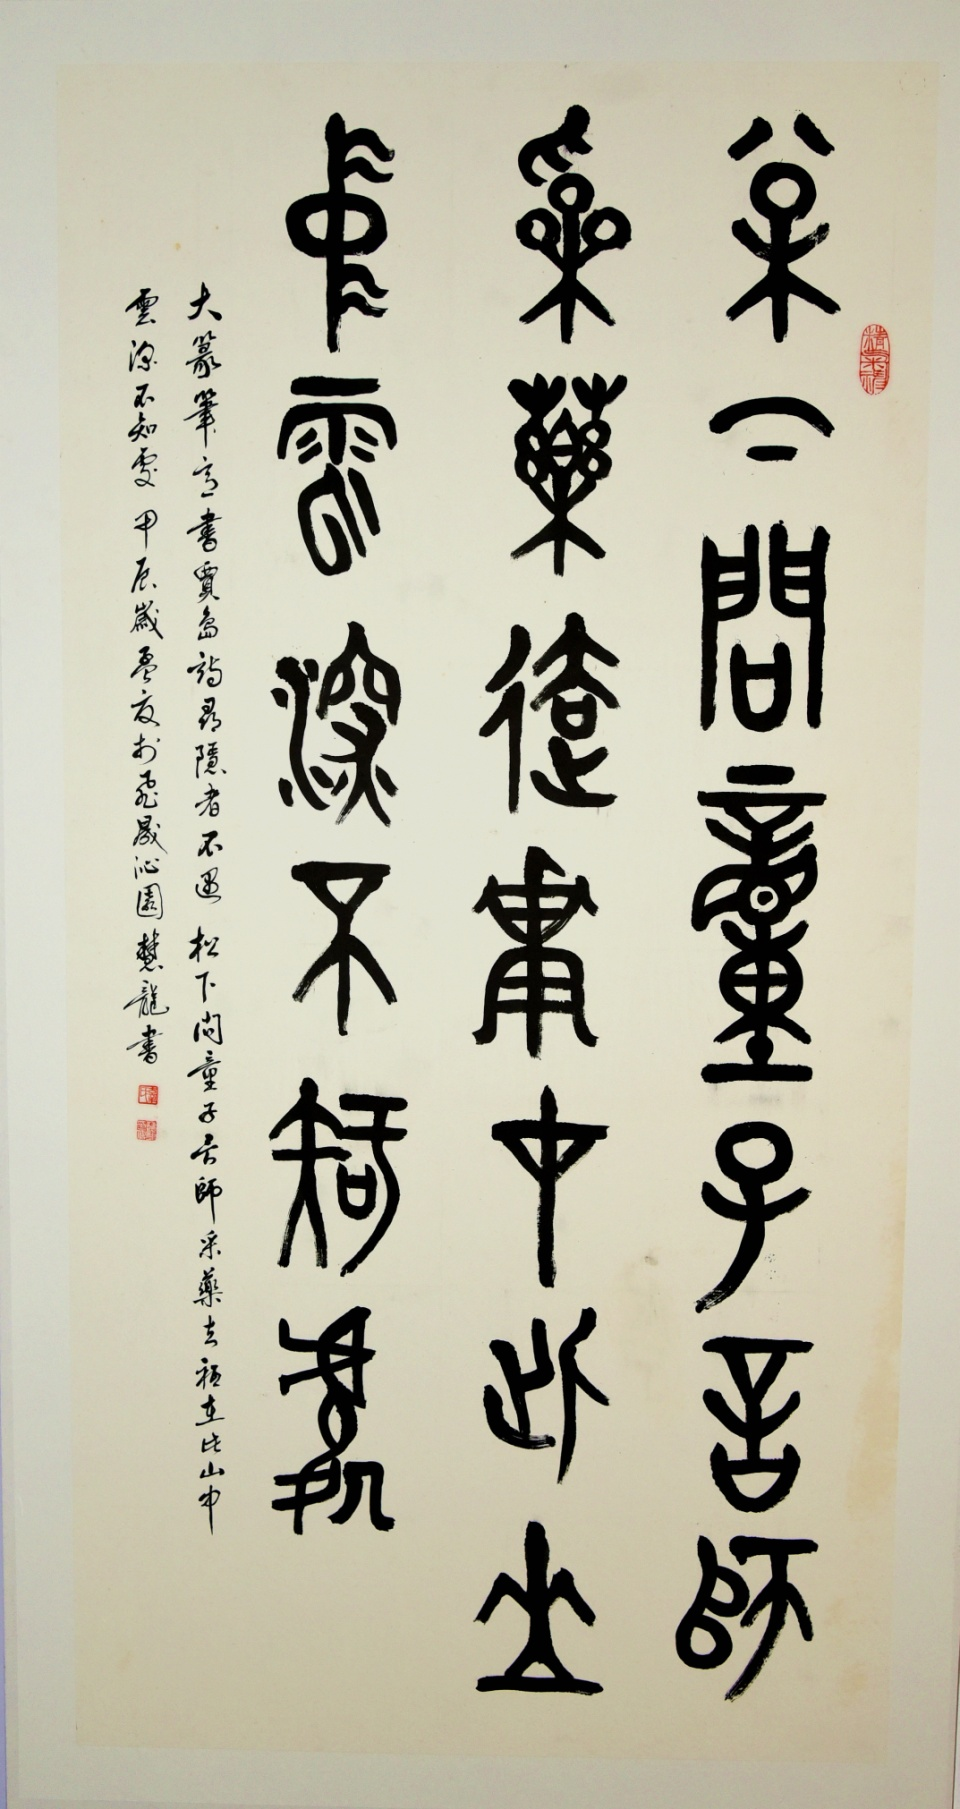 松下問童子言師
采藥去祇在此山
中雲深不知處
大篆筆意書賈島詩尋隱者不遇 松下問童子言師采藥去祇在此山中
雲深不知處 甲辰歲孟夏於飛晟沁園慧龍書